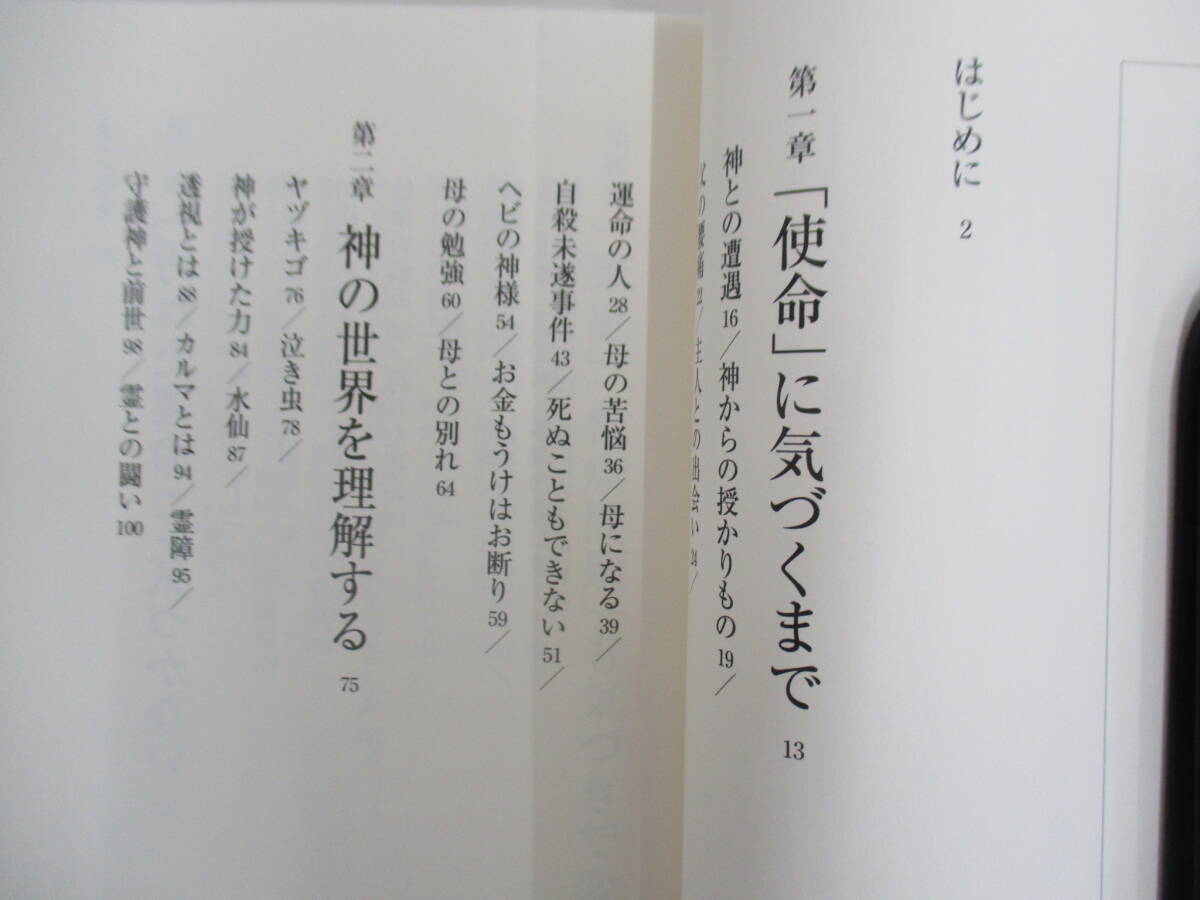 はじめに 2
第一章 「使命」に気づくまで 13
神との遭遇 16／神からの授かりもの 19／
父の腰痛 22／主人との出会い 24／
運命の人 28／母の苦悩 36／母になる 39／
自殺未遂事件 43／死ぬこともできない 51／
ヘビの神様 54／お金もうけはお断り 59／
母の勉強 60／母との別れ 64
第二章 神の世界を理解する 75
ヤヅキゴ 76／泣き虫 78／
神が授けた力 84／水仙 87／
透視とは 88／カルマとは 94／霊障 95／
守護神と前世 98／霊との闘い 100